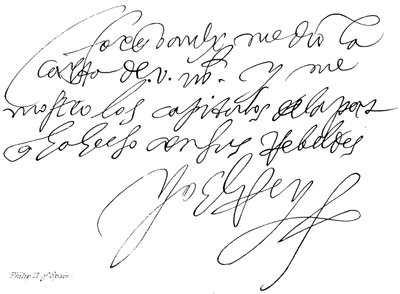 me dio la
carta de .v. m. y me
mostro los capitulos de la paz
q a hecho con sus Rebeldes
Yo El Rey
Philip II of Spain